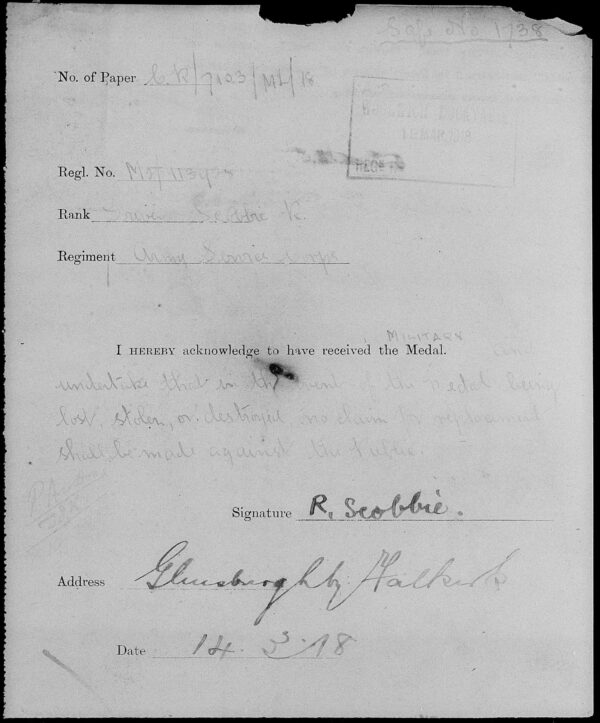 Safe No 1738
No. of Paper C.R/7103/ML/18
Regl. No. M2/
Rank Driver Scobbie R.
Regiment Army Service Corps
MILITARY
I HEREBY acknowledge to have received the Medal. and
undertake that in the event of the medal being
lost, stolen, or destroyed, no claim for replacement
shall be made against the Public.
Signature R. Scobbie.
Address by Falkirk
Date 14.3.18